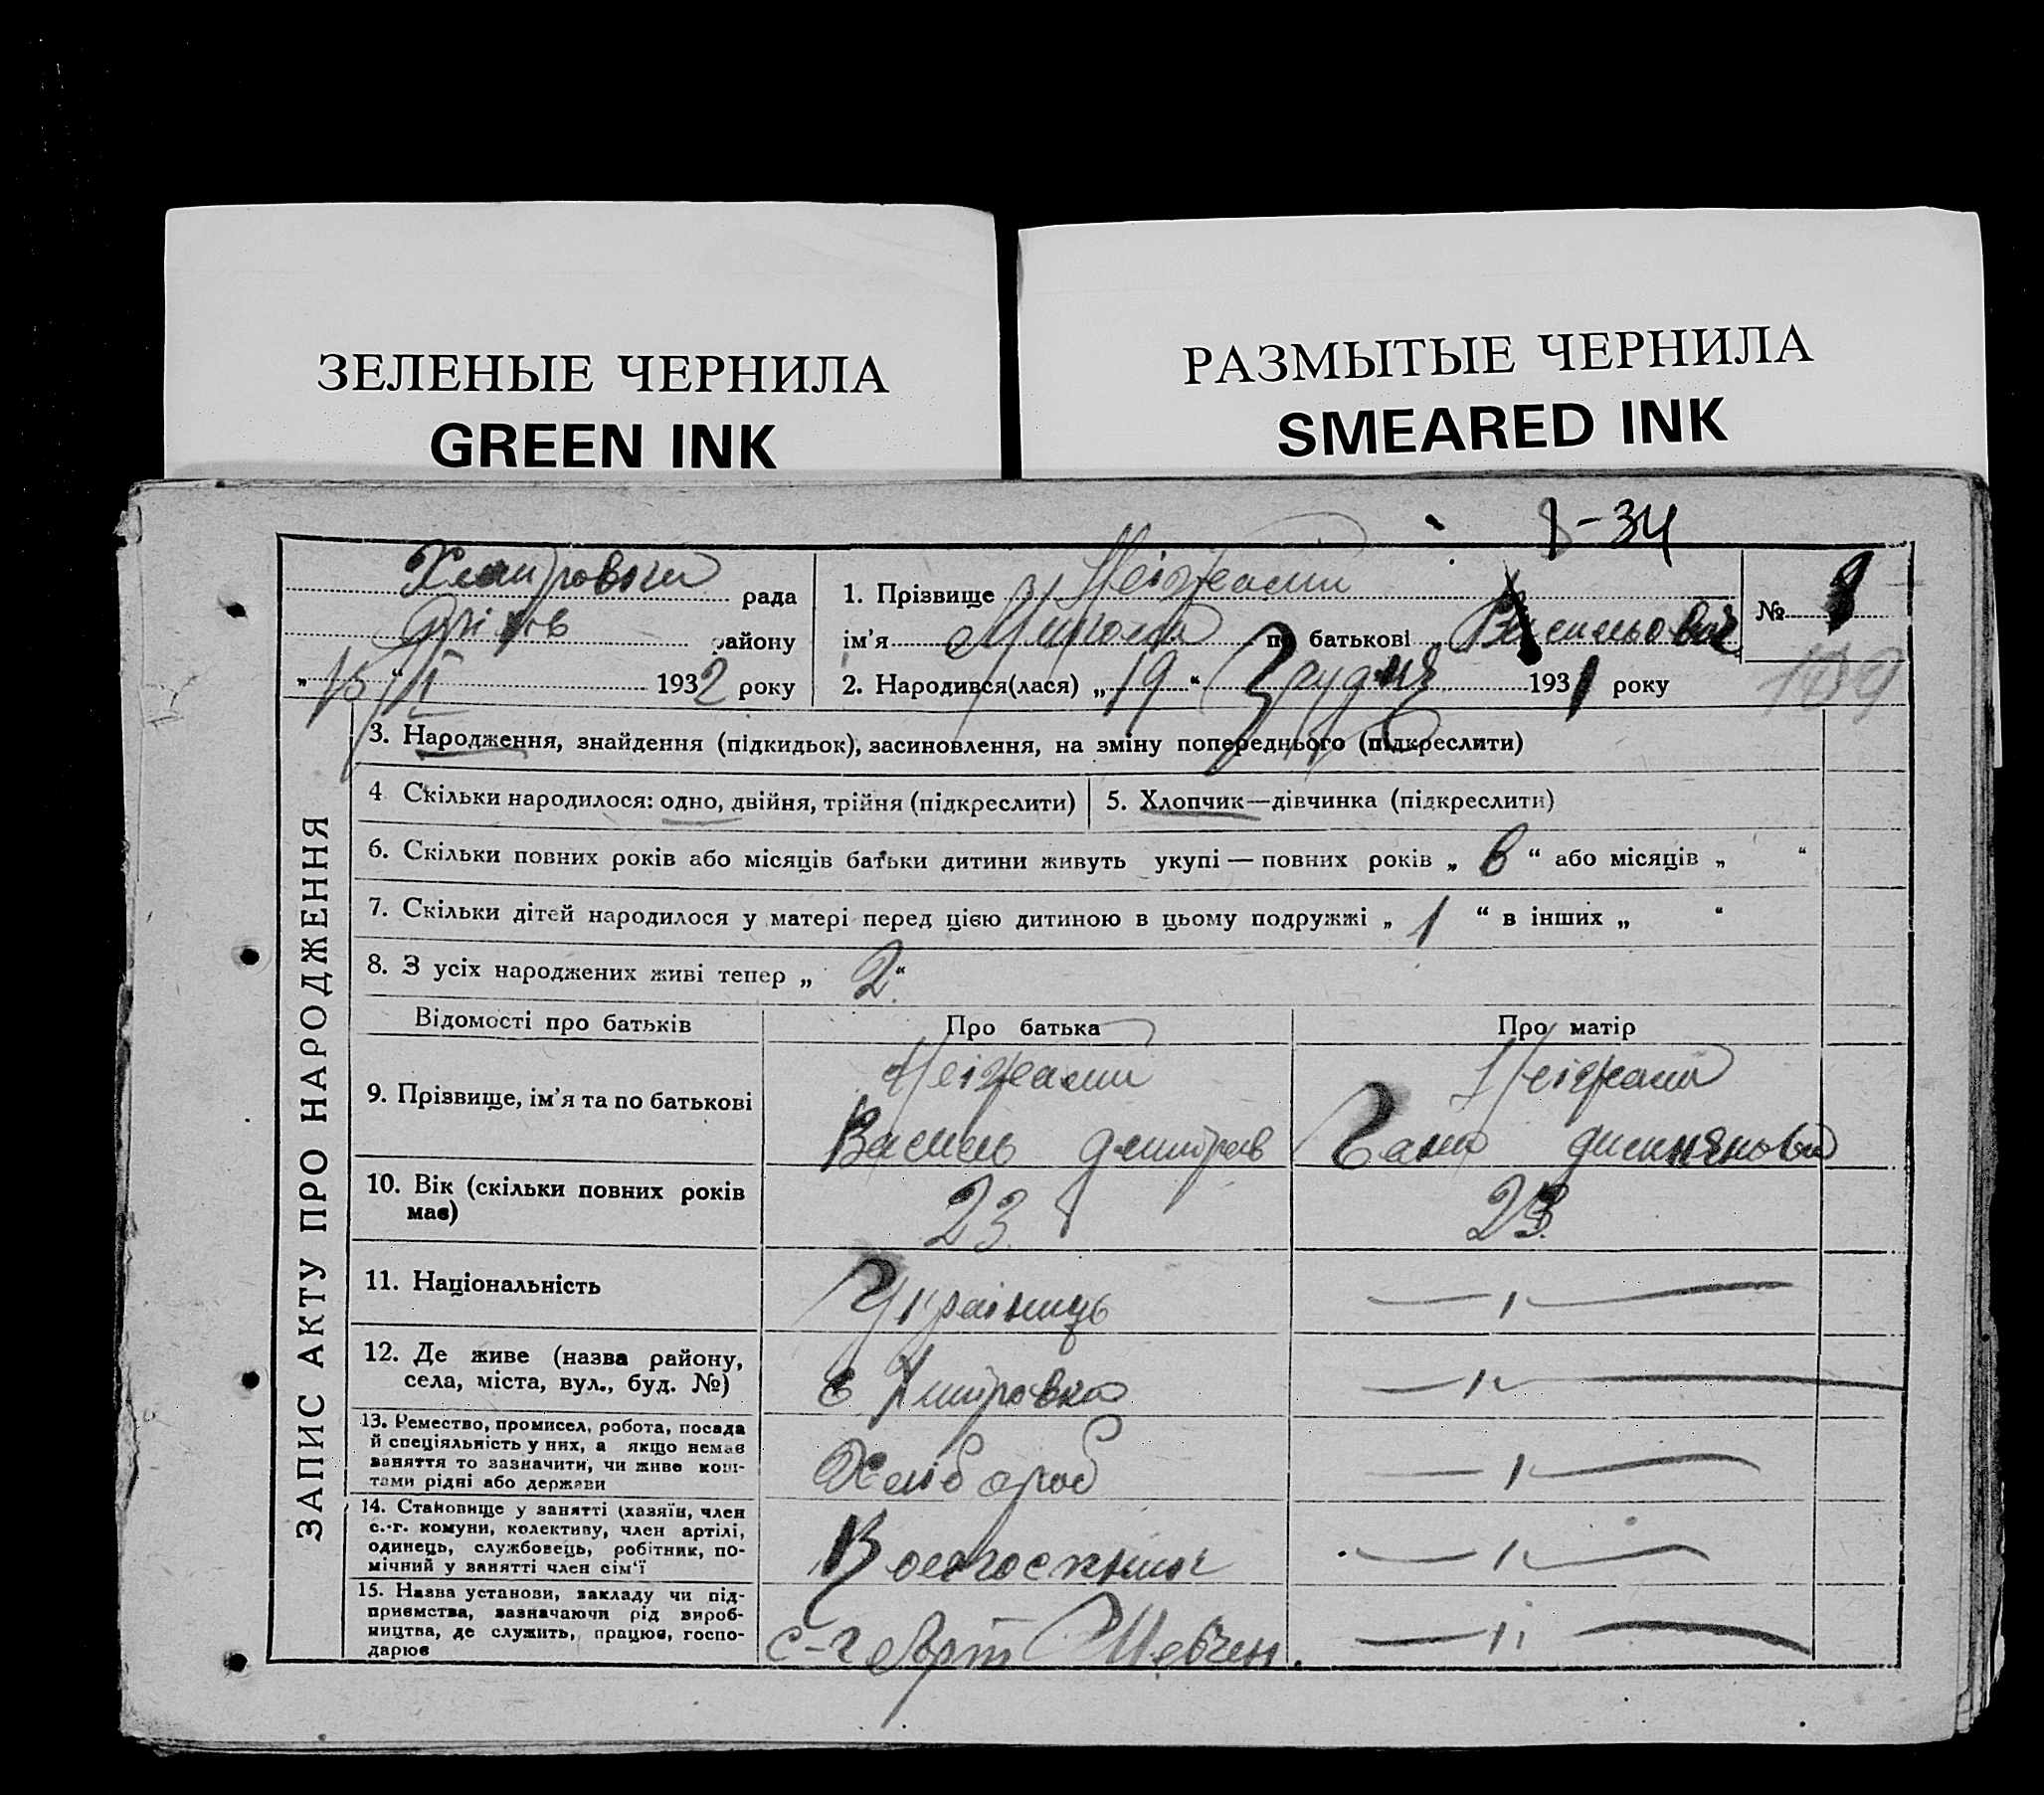 ЗЕЛЕНЫЕ ЧЕРНИЛА
GREEN INK
РАЗМЫТЫЕ ЧЕРНИЛА
SMEARED INK
-34
рада
району
„15“ II 1932 року
1. Прізвище
ім'я по батькові Васильович
2. Народився(лася) „19“ Грудня 1931 року
№
189
ЗАПИС АКТУ ПРО НАРОДЖЕННЯ
3. Народження, знайдення (підкидьок), засиновлення, на зміну попереднього (підкреслити)
4 Скільки народилося: одно, двійня, трійня (підкреслити)
5. Хлопчик—дівчинка (підкреслити)
6. Скільки повних років або місяців батьки дитини живуть укупі — повних років „ 6 “ або місяців „ “
7. Скільки дітей народилося у матері перед цією дитиною в цьому подружжі „ 1 “ в інших „ “
8. З усіх народжених живі тепер „ 2 “
Відомості про батьків
Про батька
Про матір
9. Прізвище, ім'я та по батькові
Василь Дмитров
Ганна
10. Вік (скільки повних років
має)
23
23
11. Національність
Українець
— " —
12. Де живе (назва району,
села, міста, вул., буд. №)
с Дмитровка
— " —
13. Ремество, промисел, робота, посада
й спеціяльність у них, а якщо немає
заняття то зазначити, чи живе кош-
тами рідні або держави
Хлібороб
— " —
14. Становище у занятті (хазяїн, член
с.-г. комуни, колективу, член артілі,
одинець, службовець, робітник, по-
мічний у занятті член сім'ї
Колгоспник
— " —
15. Назва установи, закладу чи під-
приємства, зазначаючи рід вироб-
ництва, де служить, працює, госпо-
дарює
с-г Арт Шевчен.
— " —